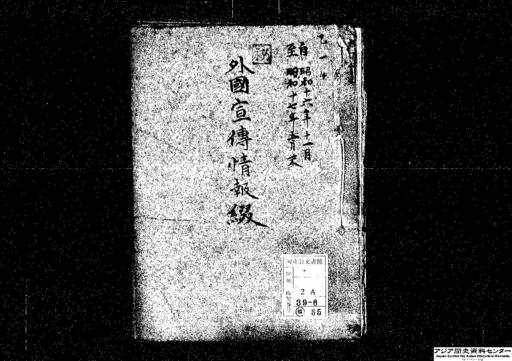 自昭和十六年十一月
至昭和十七年
秘
外國宣傳情報綴
国立公文書館
2A
39-6
55
アジア歴史資料センター
Japan Center for Asian Historical Records